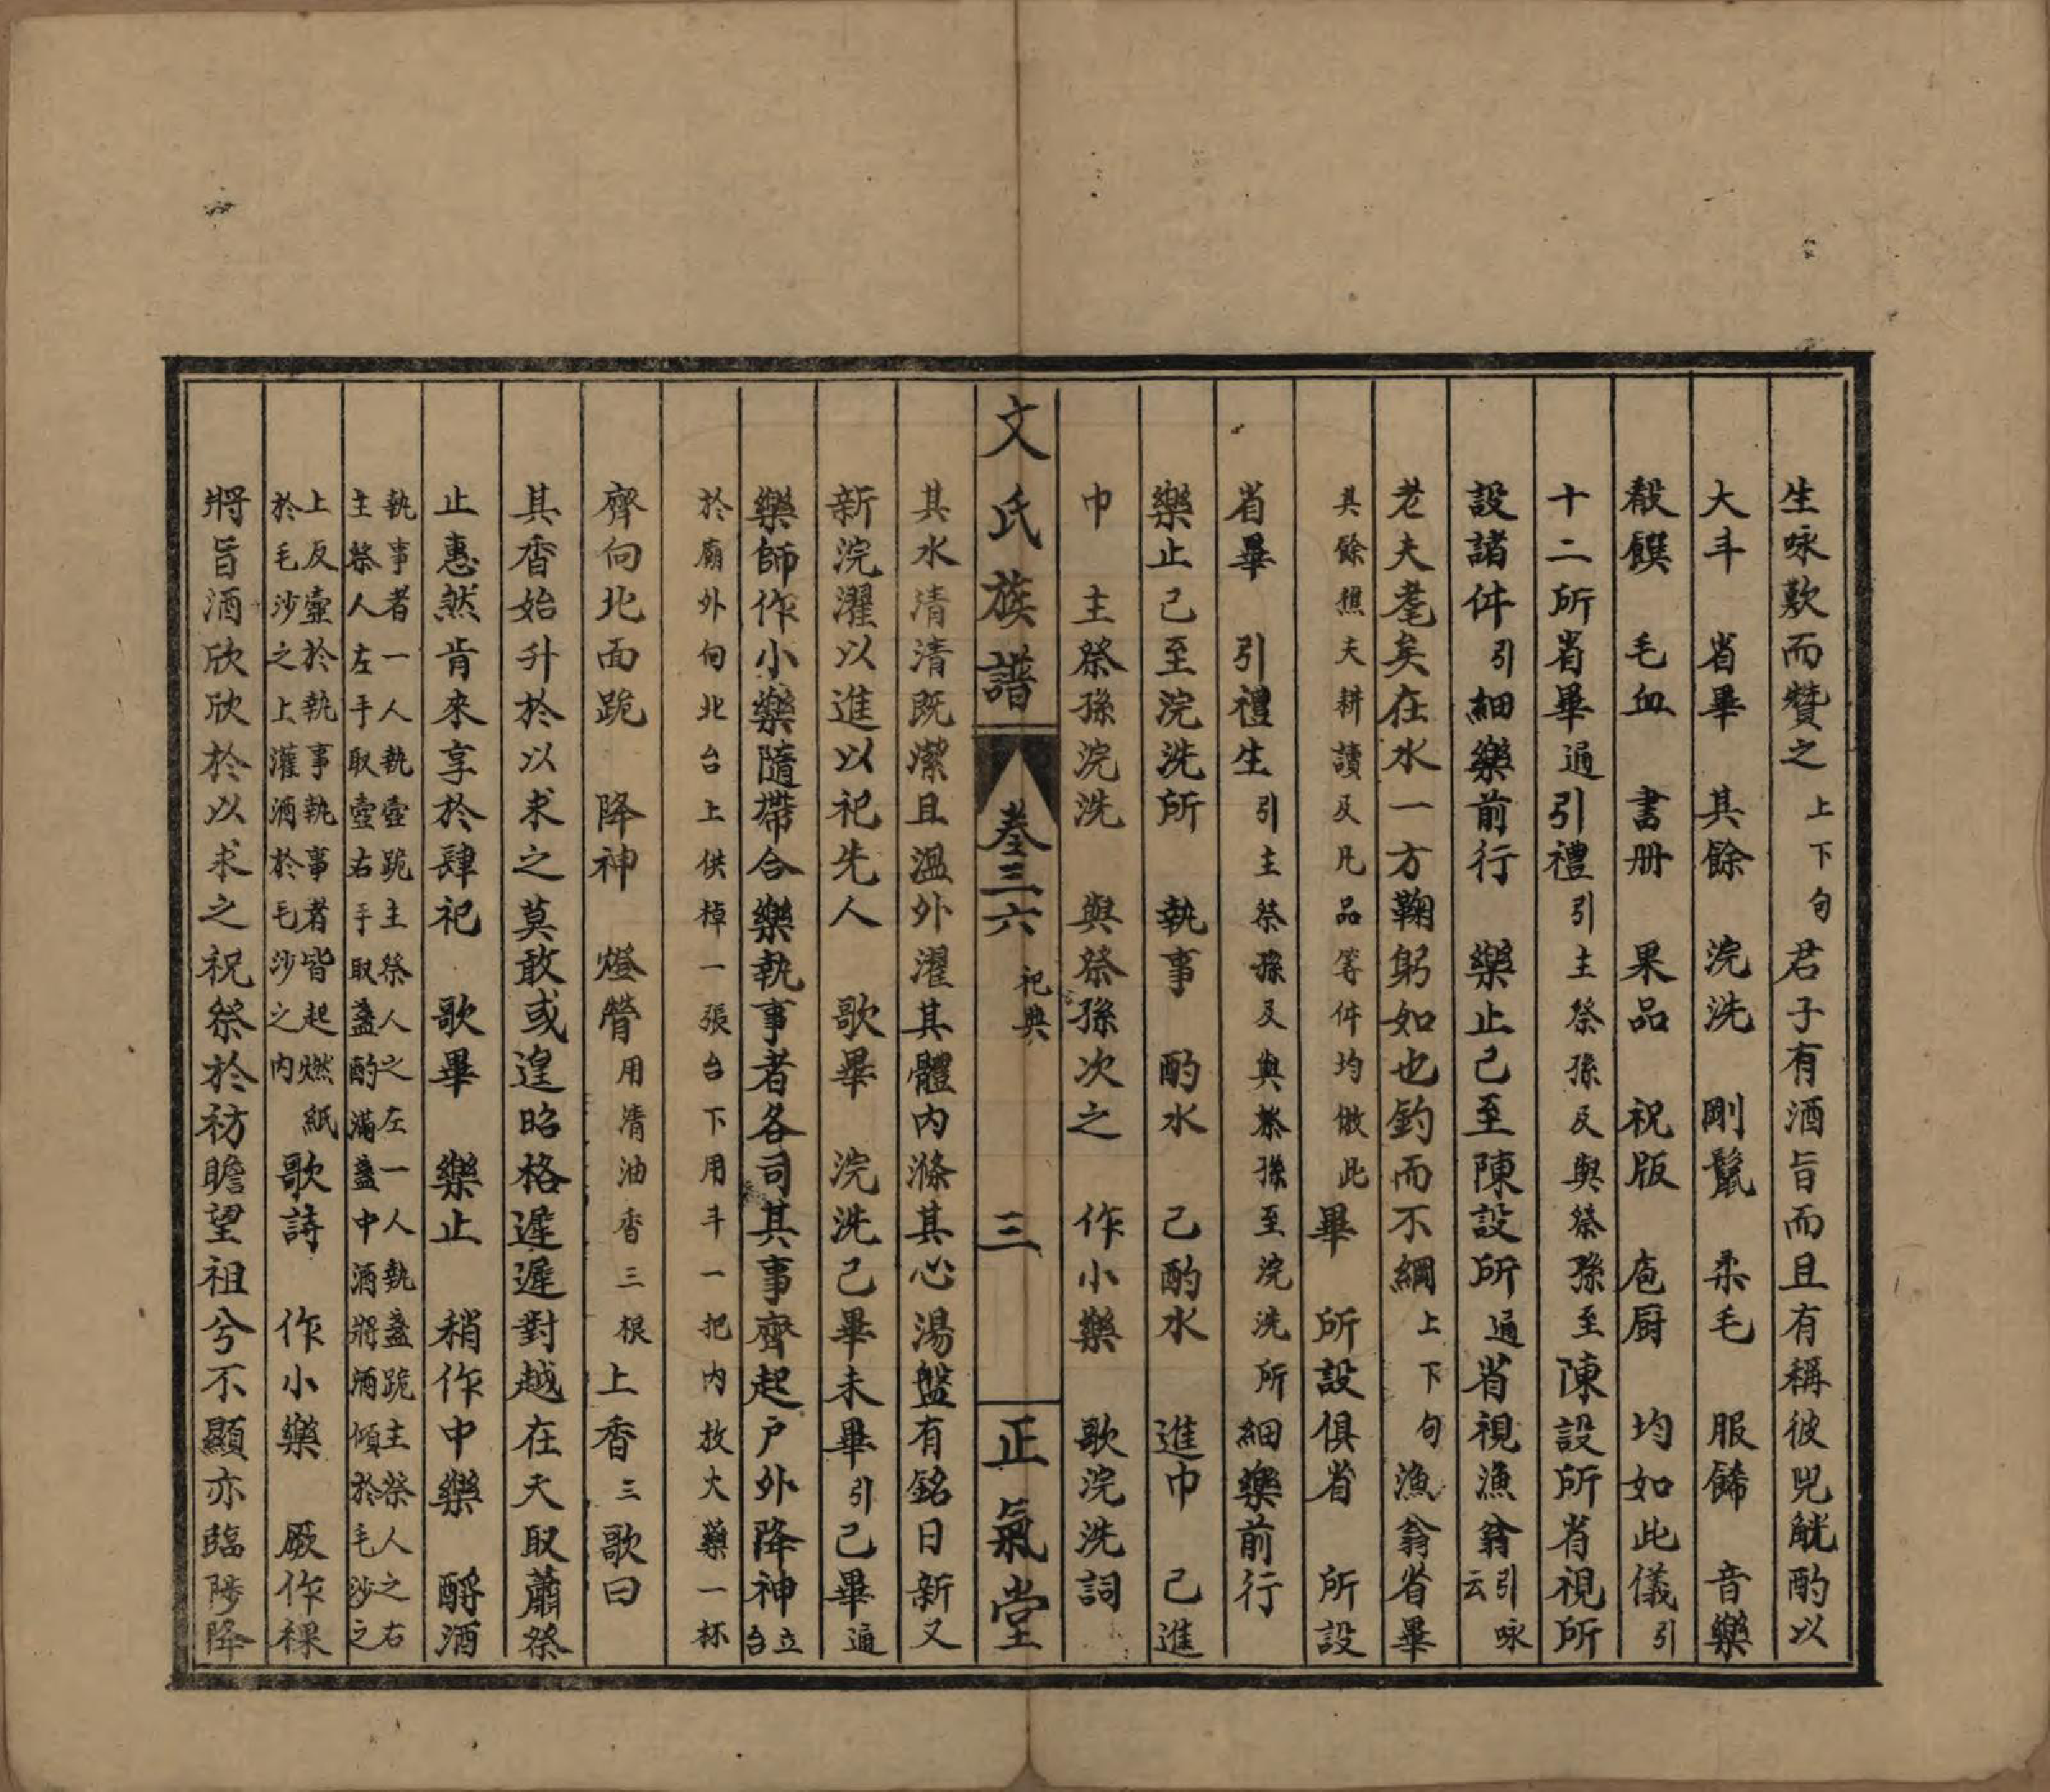 生咏歎而贊之上下句君子有酒旨而且有稱彼兕觥酌以
大斗　省畢　其餘　浣洗　剛鬣　柔毛　服餙　音樂
殽饌　毛血　書册　果品　祝版　庖厨　均如此儀引
十二所省畢通引禮引主祭孫及與祭孫至陳設所省視所
設諸件引細樂前行　樂止已至陳設所通省視漁翁引咏云
老夫耄矣在水一方鞠躬如也釣而不綱上下句漁翁省畢
其餘樵夫耕讀及凡品等件均倣此　畢　所設俱省　所設
省畢　引禮生引主祭孫及與祭孫至浣洗所細樂前行
樂止已至浣洗所　執事　酌水　已酌水　進巾　已進
巾　主祭孫浣洗　與祭孫次之　作小樂　歌浣洗詞
文氏族譜　卷三六　祀典　三　正氣堂
其水清清既潔且溫外濯其體內滌其心湯盤有銘日新又
新浣濯以進以祀先人　歌畢　浣洗已畢未畢引已畢通
樂師作小樂隨帶合樂執事者各司其事齊起户外降神立台
於廟外向北台上供棹一張台下用斗一把内放大藥一杯
齊向北面跪　降神　燈膋用清油香三根上香三歌曰
其香始升於以求之莫敢或遑昭格遲遲對越在天取蕭祭
止惠然肯來享於肆祀　歌畢　樂止　稍作中樂　酹酒
執事者一人執壺跪主祭人之左一人執盞跪主祭人之右
主祭人左手取壺右手取盞酌滿盞中酒將酒傾於毛沙之
上反壺於執事執事者皆起燃紙
於毛沙之上灌酒於毛沙之内　歌詩　作小樂　厥作祼
將旨酒欣欣於以求之祝祭於祊瞻望祖兮不顯亦臨陟降